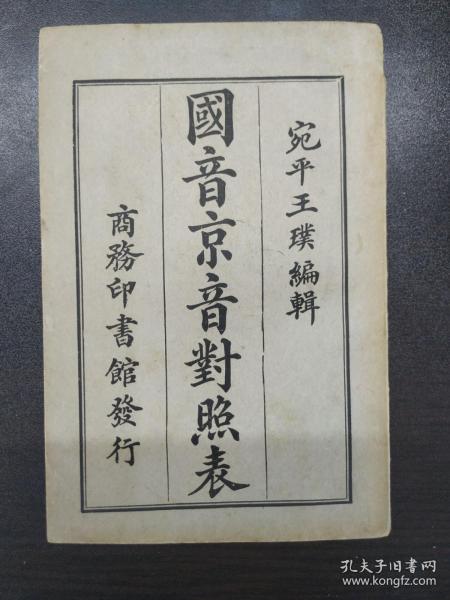 宛平王璞編輯
國音京音對照表
商務印書館發行
孔夫子旧书网
www.kongfz.com